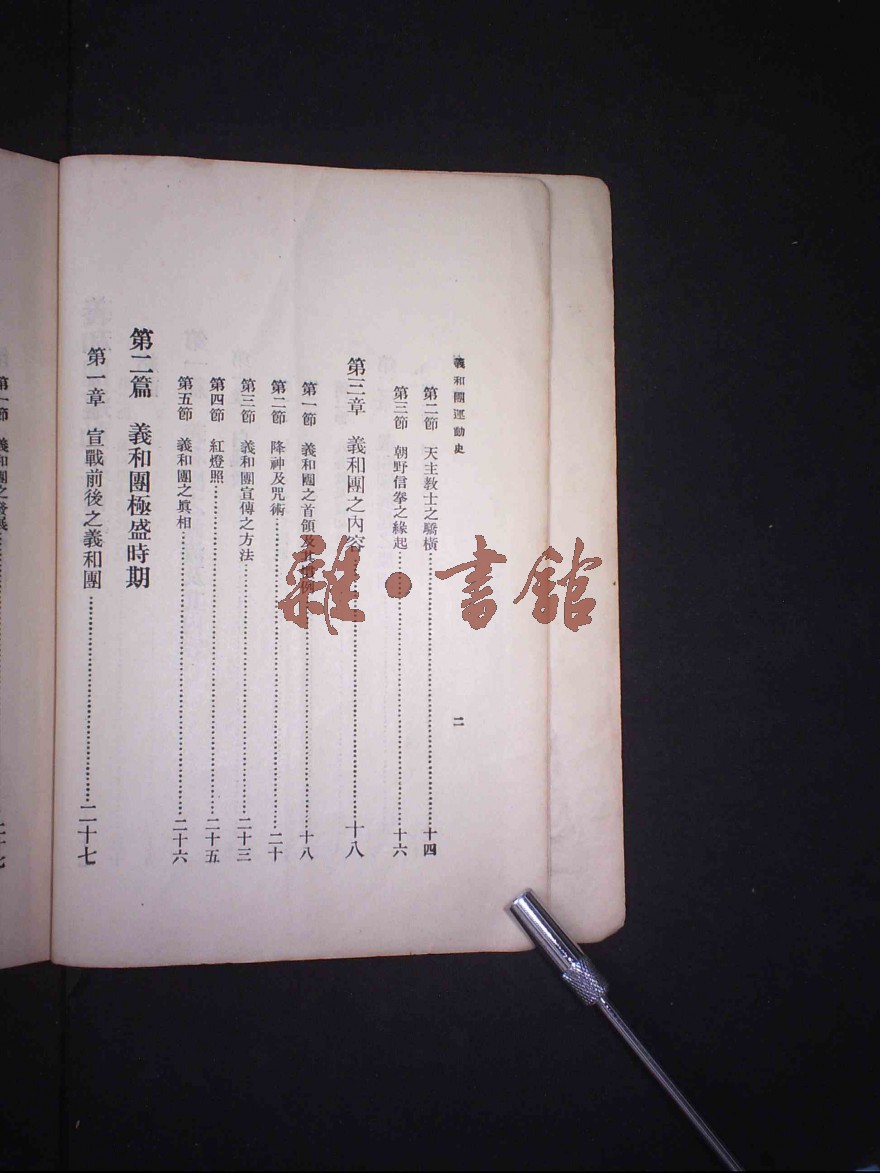 義和團運動史
二
第二節 天主教士之驕橫……十四
第三節 朝野信拳之緣起……十六
第三章 義和團之內容……十八
第一節 義和團之首領及其慣例……十八
第二節 降神及咒術……二十
第三節 義和團宣傳之方法……二十三
第四節 紅燈照……二十五
第五節 義和團之眞相……二十六
第二篇 義和團極盛時期
第一章 宣戰前後之義和團……二十七
第一節 義和團之發展……二十七
雜·書館